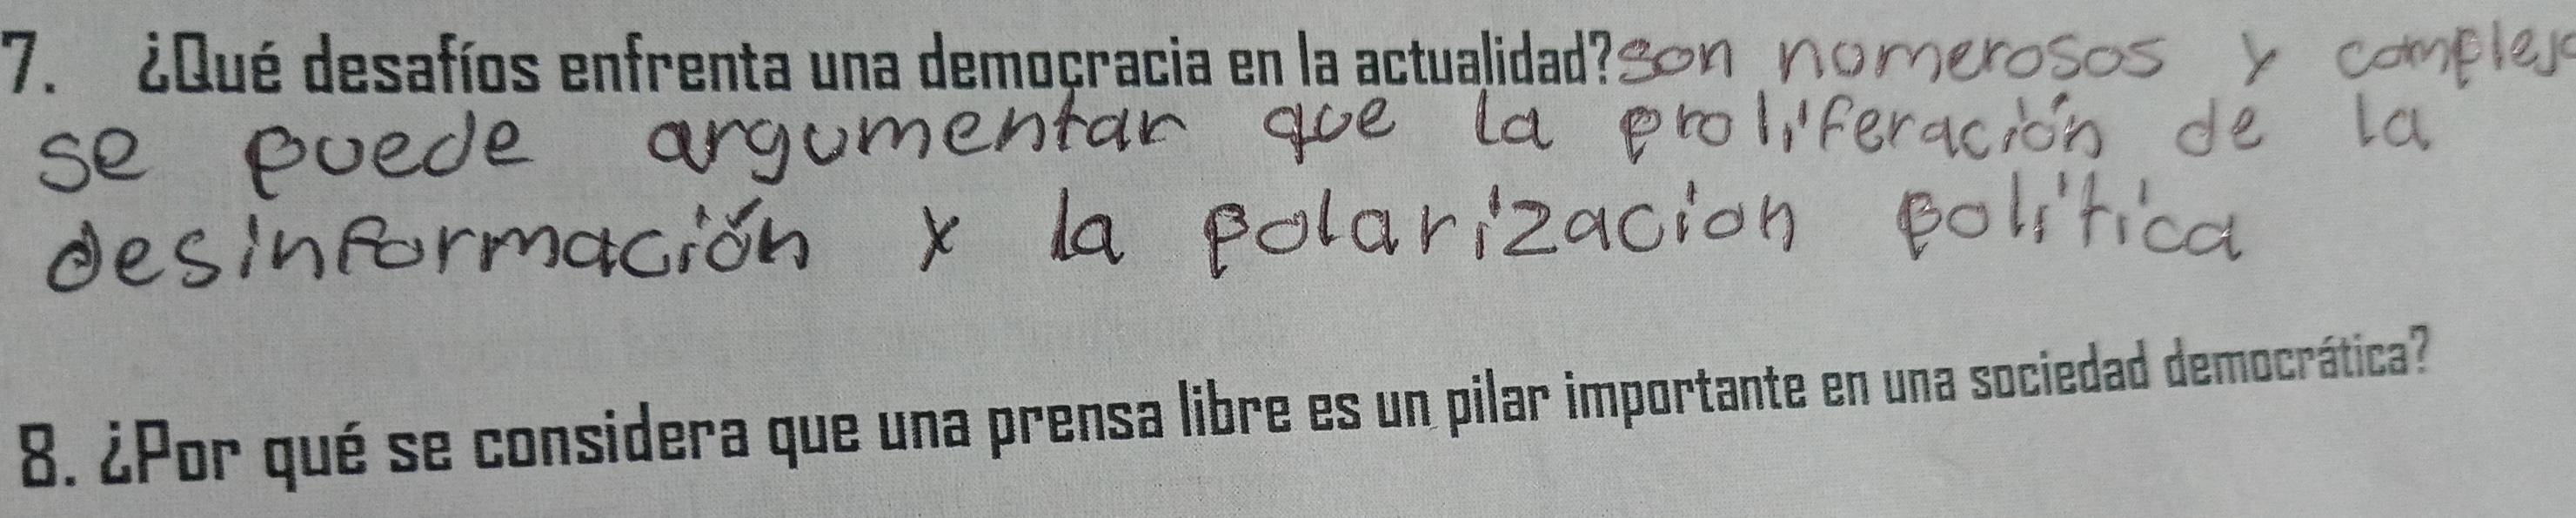 7. ¿Qué desafíos enfrenta una democracia en la actualidad? son nomerosos y
se puede argumentar que la proliferación de la
desinformación y la polarización política
8. ¿Por qué se considera que una prensa libre es un pilar importante en una sociedad democrática?